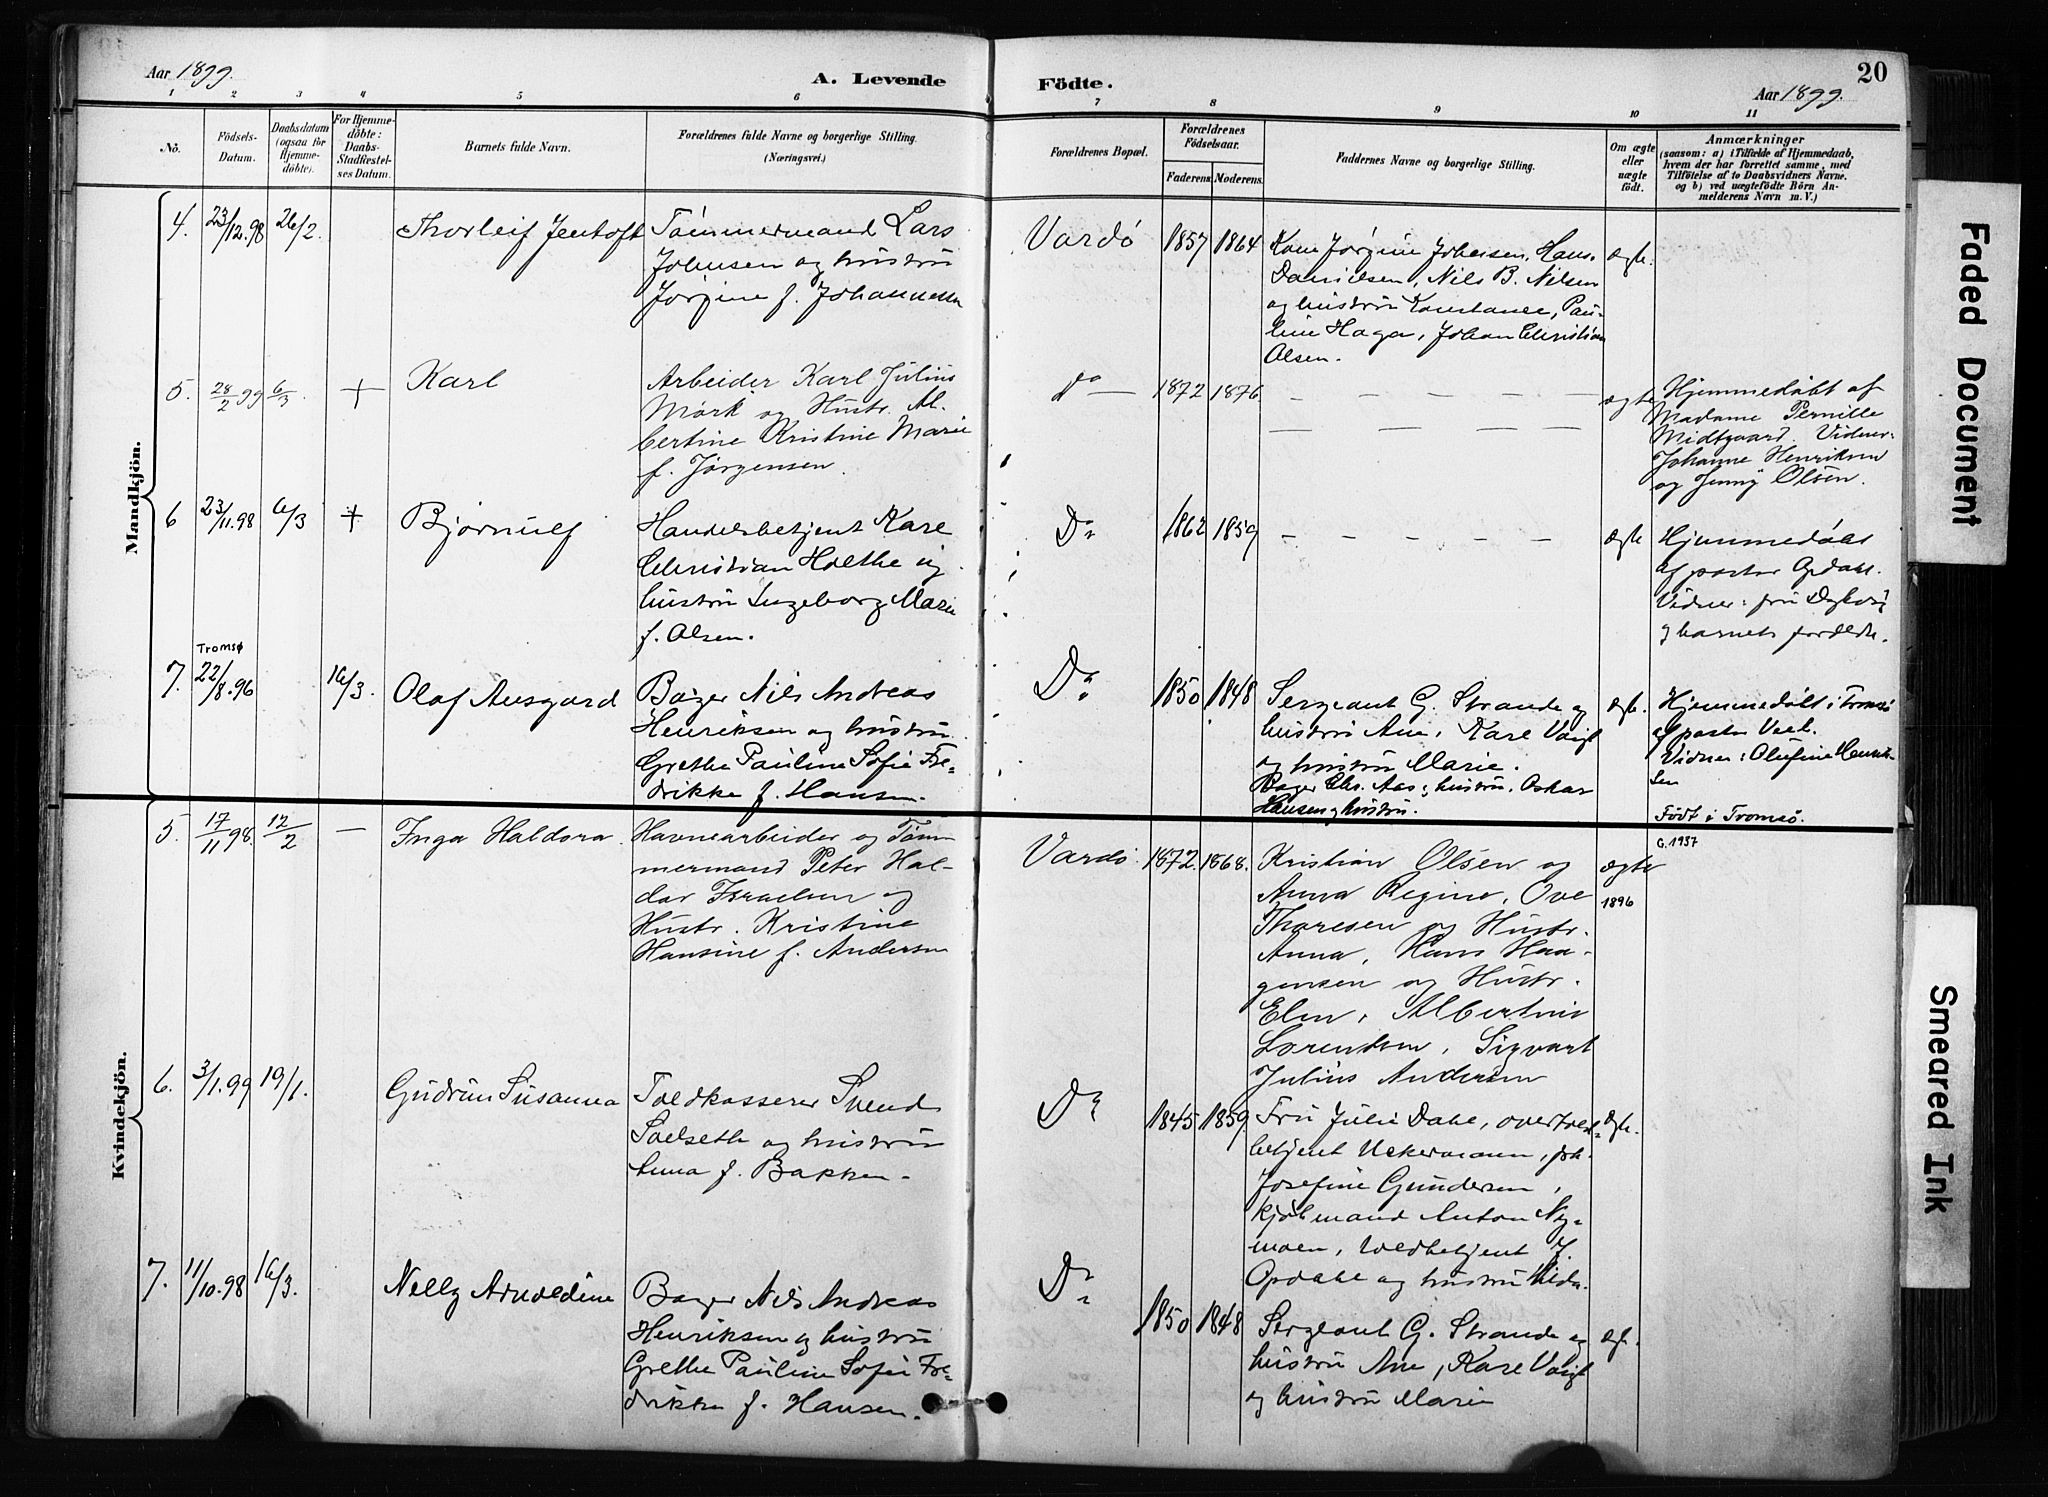 Aar 1899.
A. Levende
Födte.
Aar 1899.
20
1 2 3 4 5 6 7 8 9 10 11
No.
Födsels-
Datum.
Daabsdatum
(ogsaa för
Hjemme-
döbte).
For Hjemme-
döbte:
Daabs-
Stadfestel-
ses Datum.
Barnets fulde Navn.
Forældrenes fulde Navne og borgerlige Stilling.
(Næringsvei.)
Forældrenes Bopæl.
Forældrenes
Födselsaar.
Faderens. Moderens.
Faddernes Navne og borgerlige Stilling.
Om ægte
eller
uægte
født.
Anmærkninger
(saasom: a) i Tilfælde af Hjemmedaab,
hvem der har forrettet samme, med
Tilföielse af to Daabsvidners Navne.
og b) ved uægtefödte Börn An-
melderens Navn m. V.)
Mandkjön.
4. 23/12.98 26/2. Thorleif Jentoft
Tømmermand Lars
Johnsen og hustru
Jørgine f. Johannesen
Vardö 1857 1864
Kone Jørgine Johnsen, Hans
Danielsen, Nils B. Nilsen
og hustru Konstanse, Pau-
line Haga, Johan Christian
Olsen.
ægte.
5. 28/2 99 6/3. + Karl
Arbeider Karl Julius
Mørk og Hustr. Al-
bertine Kristine Marie
f. Jørgensen.
Do — 1872 1876 — — — — — —
ægte
Hjemmedøbt af
Madame Pernille
Midtgaard. Vidner:
Johanne Henriksen
og Jenny Olsen.
6 23/11.98 6/3 + Bjørnulf
Handelsbetjent Karl
Christian Holthe og
hustru Ingeborg Marie
f. Olsen.
Do 1862 1859 — — — — —
ægte
Hjemmedøbt
af pastor Opdahl.
Vidner: fru Dykvig
og barnets forældre.
Tromsø
7. 22/8.96 16/3. Olaf Ansgard
Bager Nils Andreas
Henriksen og hustru
Grethe Pauline Sofie Fre-
drikke f. Hansen.
Do 1850 1848
Sergeant G. Strande og
hustru Ane, Karl Voigt
og hustru Marie.
Bager Chr. Aas og hustru, Oskar
Hansen og hustru.
ægte.
Hjemmedøbt i Tromsø
af pastor
Vidner: Olufine Henrik-
sen
Født i Tromsø.
G. 1937
Kvindekjön.
5. 17/11 98. 12/2 — Inga Haldora.
Havnearbeider og Tøm-
mermand Peter Hal-
dor Israelsen og
Hustr. Kristine
Hansine f. Andersen
Vardö 1872. 1868.
Kristian Olsen og
Anna Regine, Ove
Thoresen og Hustr.
Anna, Hans Haa-
gensen og Hustr.
Elen, Albertine
Lorentsen, Sigvart
Julius Andersen
ægte
1896
6. 3/1.99 19/1. Gudrun Susanna
Toldkasserer Svend
Solseth og hustru
Anna f. Bakken.
Do 1845 1859.
Fru Julie Dahl, overtold-
betjent Uckermann, frk.
Josefine Gundersen,
kjøbmand Anton Ny-
moen, toldbetjent J.
Opdahl og hustru Hilda.
ægte.
7. 11/10.98 16/3. Nelly Arnoldine
Bager Nils Andreas
Henriksen og hustru
Grethe Pauline Sofie Fre-
drikke f. Hansen.
Do 1850 1848
Sergeant G. Strande og
hustru Ane, Karl Voigt
og hustru Marie
ægte.
Faded Document
Smeared Ink